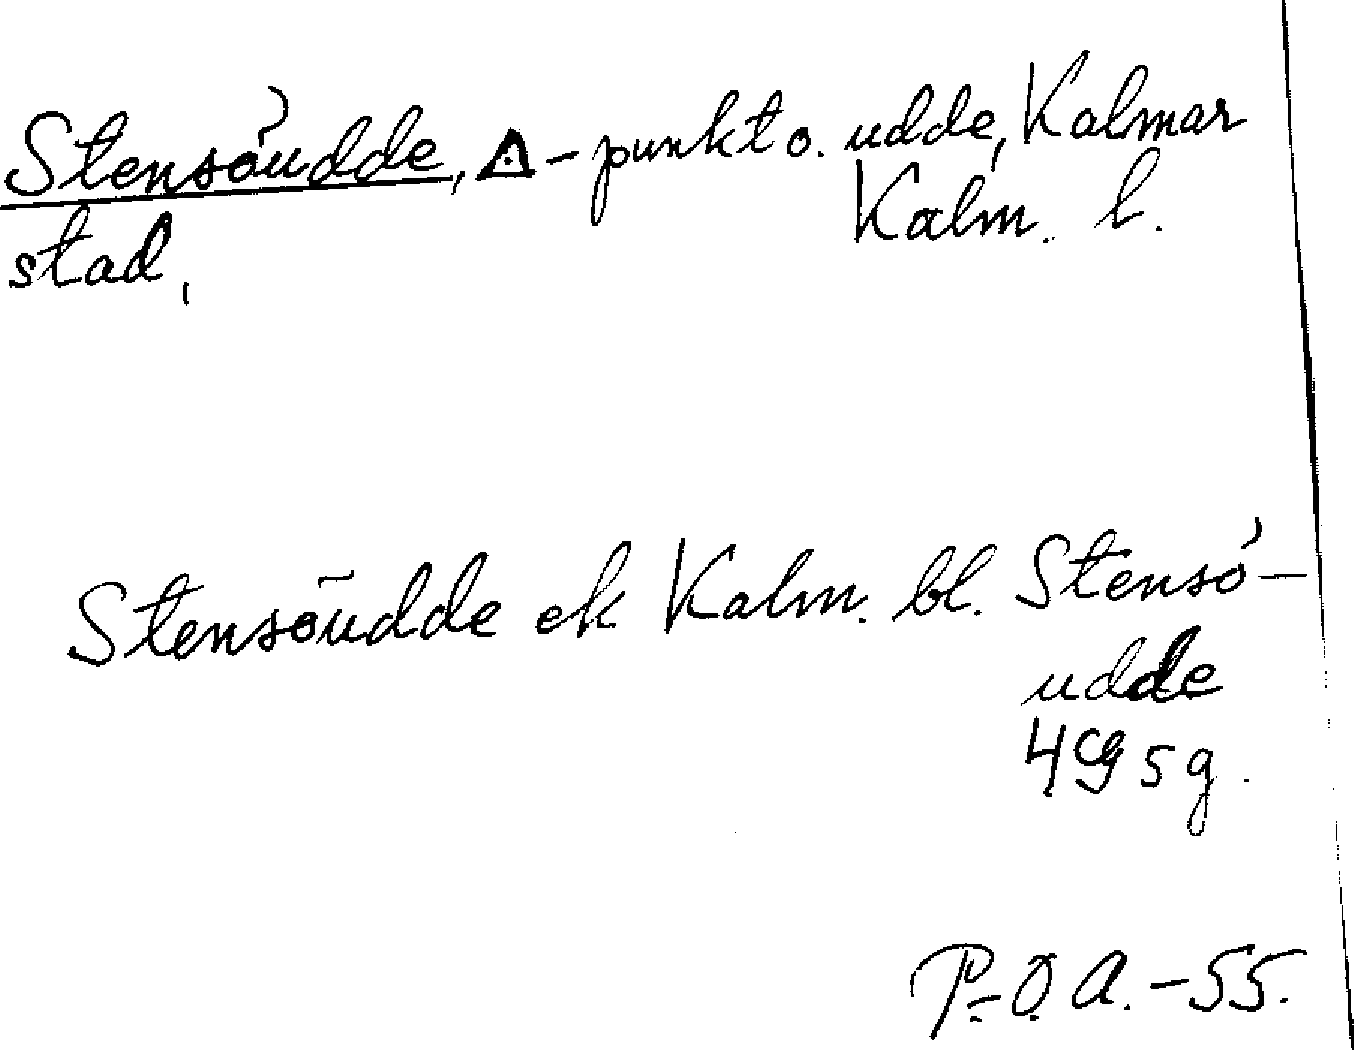 Stensöudde, △-punkt o. udde, Kalmar
stad, Kalm. l.
Stensöudde ek Kalm. bl. Stensö-
udde
4G5g.
P-O A.-55.